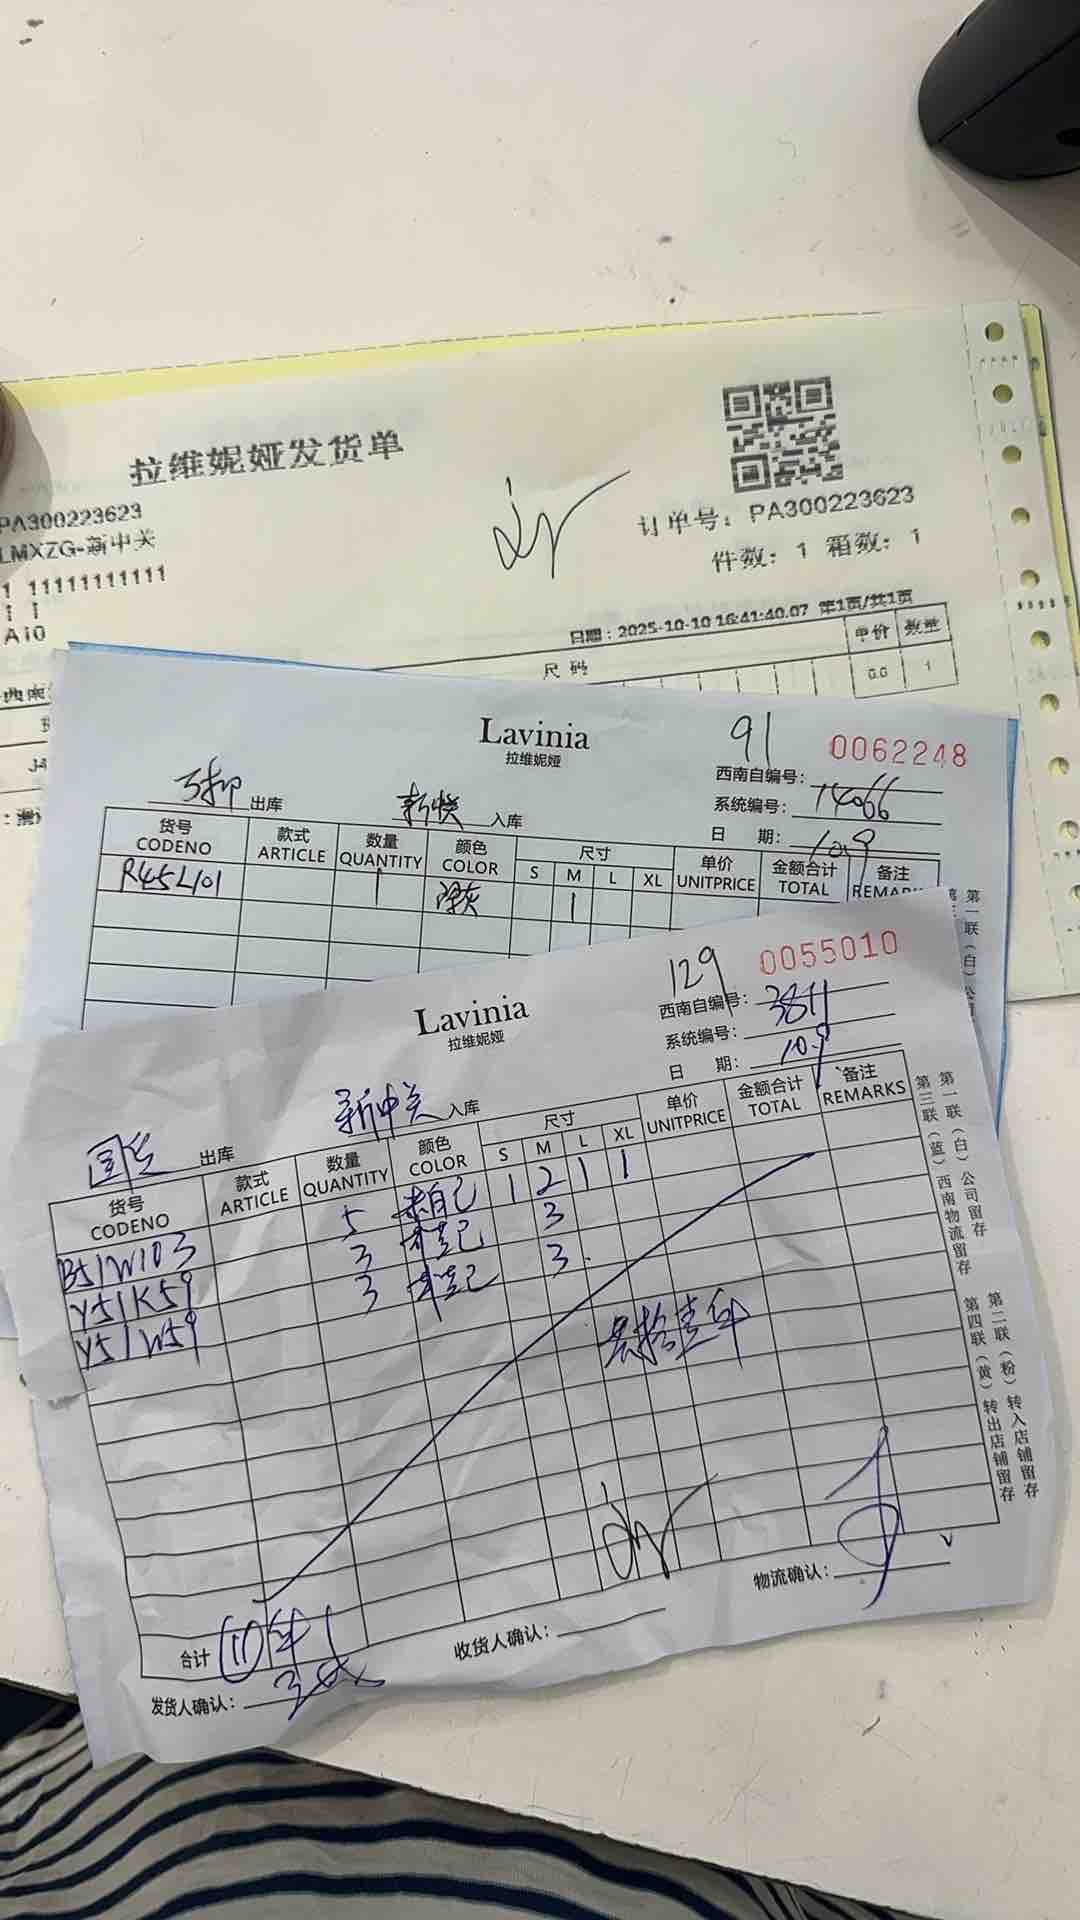 拉维妮娅发货单
PA300223623
LMXZG-新中关
1 11111111111
1 1
A10
订单号: PA300223623
件数: 1 箱数: 1
日期: 2025-10-10 16:41:40.07 第1页/共1页
尺码 单价 数量
0.0 1
西南
Lavinia
拉维妮娅
91 0062248
西南自编号:
系统编号: 14066
日 期: 10.9
出库 入库
货号 CODENO 款式 ARTICLE 数量 QUANTITY 颜色 COLOR 尺寸 S M L XL 单价 UNITPRICE 金额合计 TOTAL 备注 REMARKS
R45L101 1 深灰 1
第一联(白)
Lavinia
拉维妮娅
129 0055010
西南自编号: 3811
系统编号:
日 期: 10.9
出库 新中关 入库
货号 CODENO 款式 ARTICLE 数量 QUANTITY 颜色 COLOR 尺寸 S M L XL 单价 UNITPRICE 金额合计 TOTAL 备注 REMARKS
B51W103 5 1 2 1 1
Y51K59 3 3
Y51W59 3 3
共拾壹件
合计 11件
发货人确认:
收货人确认:
物流确认:
第一联(白)公司留存
第二联(粉)转入店铺留存
第三联(蓝)西南物流留存
第四联(黄)转出店铺留存